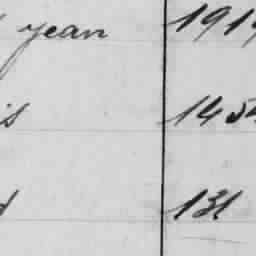 year 191
is 145
131